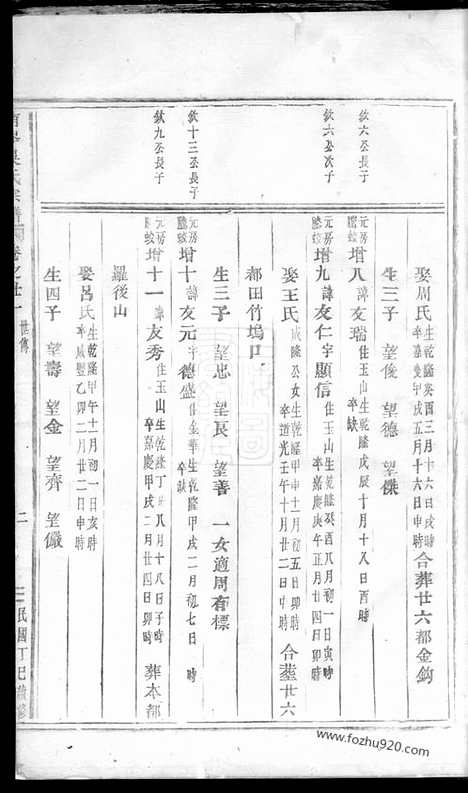 欽六公長子
欽六公次子
欽十三公長子
欽九公長子
娶周氏生乾隆癸酉三月十六日戌時卒嘉慶甲戌五月十六日申時合葬廿六都金鈎
生三子 望俊 望德 望傑
元房騰蛟增八諱友瑞住玉山生乾隆戊辰十月十八日酉時卒缺
元房騰蛟增九諱友仁字顯信住玉山生乾隆癸酉八月初一日寅時卒嘉慶庚午正月廿四日卯時
娶王氏咸隆公女生乾隆甲申十一月初五日卯時卒道光壬午十月廿二日申時合葬廿六
都田竹塢口
生三子 望忠 望良 望善 一女適周有標
元房騰蛟增十諱友元字德盛住金華生乾隆甲戌二月初七日 時卒缺
元房騰蛟增十一諱友秀住玉山生乾隆丁丑八月十八日子時卒嘉慶甲戌二月廿四日卯時葬本都
羅後山
娶呂氏生乾隆甲午十一月初一日亥時卒咸豐乙卯二月廿二日申時
生四子 望壽 望金 望齊 望儼
吳氏宗譜 卷之廿一 世傳 二 民國丁巳續修
www.fozhu920.com